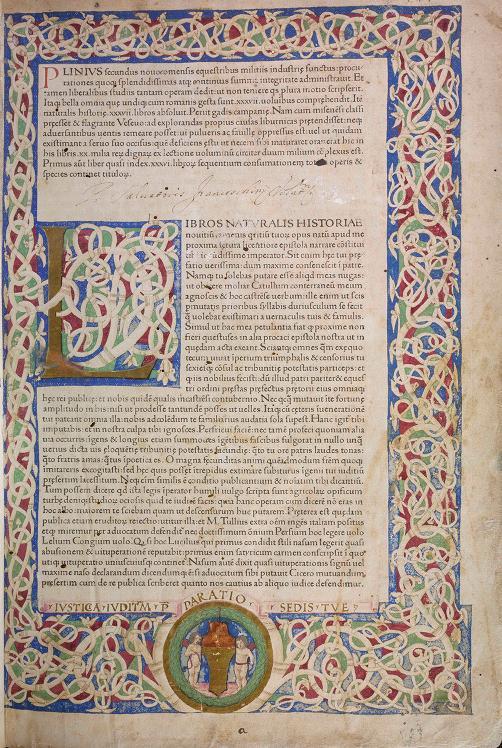 PLINIVS secundus nouocomensis equestribus militiis industrie functus: procu
rationes quoq; splendidissimas atq; continuas summa integritate administrauit. Et
tamen liberalibus studiis tantam operam dedit: ut non temere qs plura in otio scripserit.
Itaq; bella omnia que unq; cum romanis gesta sunt .xxxvii. uoluminibus comprehendit. Ite
naturalis historie .xxxvii. libros absoluit. Periit gadis campanie. Nam cum misenensi classi
preesset & flagrante Veseuo ad explorandas propius causas liburnica pretendisset: neq;
aduersantibus uentis remeare posset: ui pulueris ac fauille oppressus est: uel ut quidam
existimant a seruo suo occisus: que deficiens estu ut necem sibi maturaret orauerat hic in
his libris .xx. milia reru dignaru ex lectione uoluminu circiter duum milium coplexus est.
Primus aut liber quasi index .xxxvi. libroru sequentium consumationem totius operis &
species continet titulorum.
Saluatoris
LIBROS NATVRALIS HISTORIAE
nouitium
proxima licentiore epistola narrare costitui
iucudissime imperator. Sit enim hec tui pre
fatio uerissima: dum maximo consenescit i patre.
Namq; tu solebas putare esse aliqd meas nugas:
ut obiicere moliar Catullum conterraneu meum
agnoscis & hoc castrese uerbum: ille enim ut scis
pmutatis prioribus syllabis duriusculum se fecit
q uolebat existimari a uernaculis tuis & famulis.
Simul ut hac mea petulantia fiat q proxime non
fieri questus es in alia procaci epistola nostra ut in
quedam acta exeant. Sciantq; omnes qm exequo
tecum uiuat iperium triumphalis & censorius tu
sexiesq; cosul ac tribunitie potestatis particeps: et
quis nobilius fecisti: du illud patri pariter& equest
tri ordini prestas prefectus pretorii eius omniaq;
hec rei publice: et nobis quide qualis in castresi contubernio. Nec qcq mutauit i te fortune
amplitudo in his: nisi ut prodesse tantunde posses ut uelles. Itaq; cu ceteris in uenerationem
tui pateant omnia illa: nobis ad colendum te familiarius audatia sola supest. Hanc igitur tibi
imputabis: et in nostra culpa tibi ignosces. Perfricui facie: nec tame profeci quoniam alia
uia occurris igens & longius etiam summoues igenii fascibus fulgorat in nullo unq
uerius dicta uis eloquentie tribunitie potestatis facundie; qto tu ore patris laudes tonas:
qto fratris amas: qtus i poetica es. O magna fecunditas animi queadmodum frem quoq;
imitareris excogitasti: sed hec quis posset itrepidus extimare subiturus igenii tui iuditiu
presertim lacessitum. Neq; eim similis e conditio publicantium & noiatim tibi dicantium.
Tum possem dicere qd ista legis iperator humili uulgo scripta sunt: agricolaru opificum
turbe deniq; studioru ociosis quid te iudice facis: qua hanc operam cum dicere no eras in
hoc albo: maiorem te sciebam quam ut descensurum huc putarem. Preterea est quedam
publica etiam eruditoru reiectio: utitur illa: et M. Tullius extra oem ingenii aleam positus
etq; miremur per aduocatum defendit nec doctissimum omnium Persium hoc legere uolo
Lelium Congium uolo. Q si hoc Lucilius qui primus condidit stili nasum legerit quasi
abusionem & uituperatione reputabit: primus enim satyricum carmen conscripsit i quo
utiq; uituperatio uniuscuiusq; continet. Nasum aute dixit quasi uituperationis signu uel
maxime naso declarandum dicendumq; esi aduocatum sibi putauit Cicero mutuandum,
presertim cum de re publica scriberet quanto nos cautius ab aliquo iudice defendimur.
IVSTICA · IVDITM · P PARATIO SEDIS · TVE ·
a